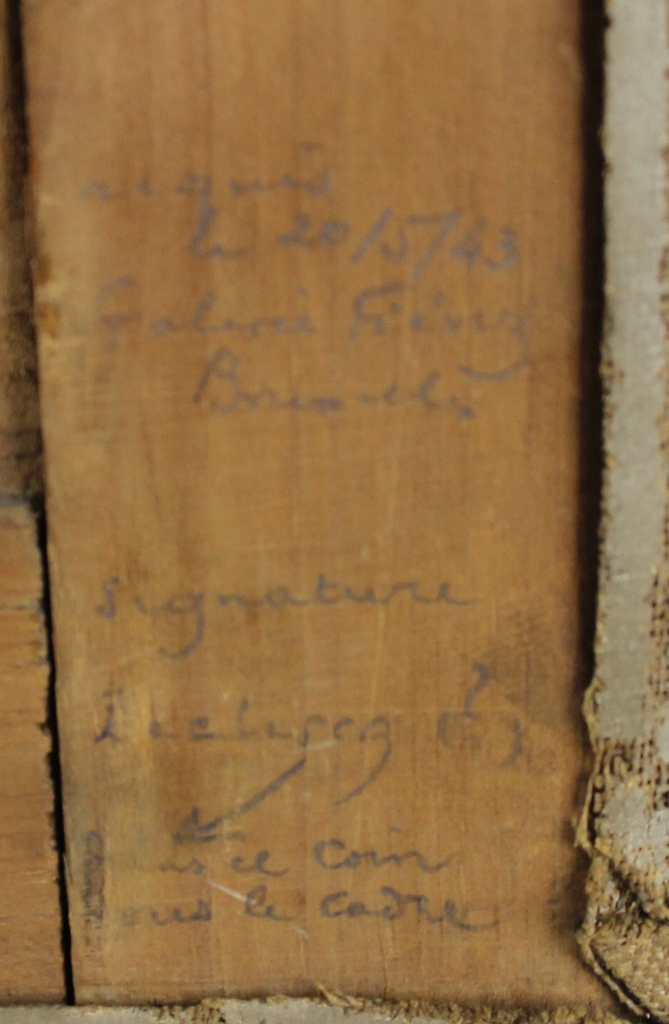 acquis
le 20/5/43
Galerie Fiévez
Bruxelles
signature
Leclercq (?)
ce coin
sous le cadre